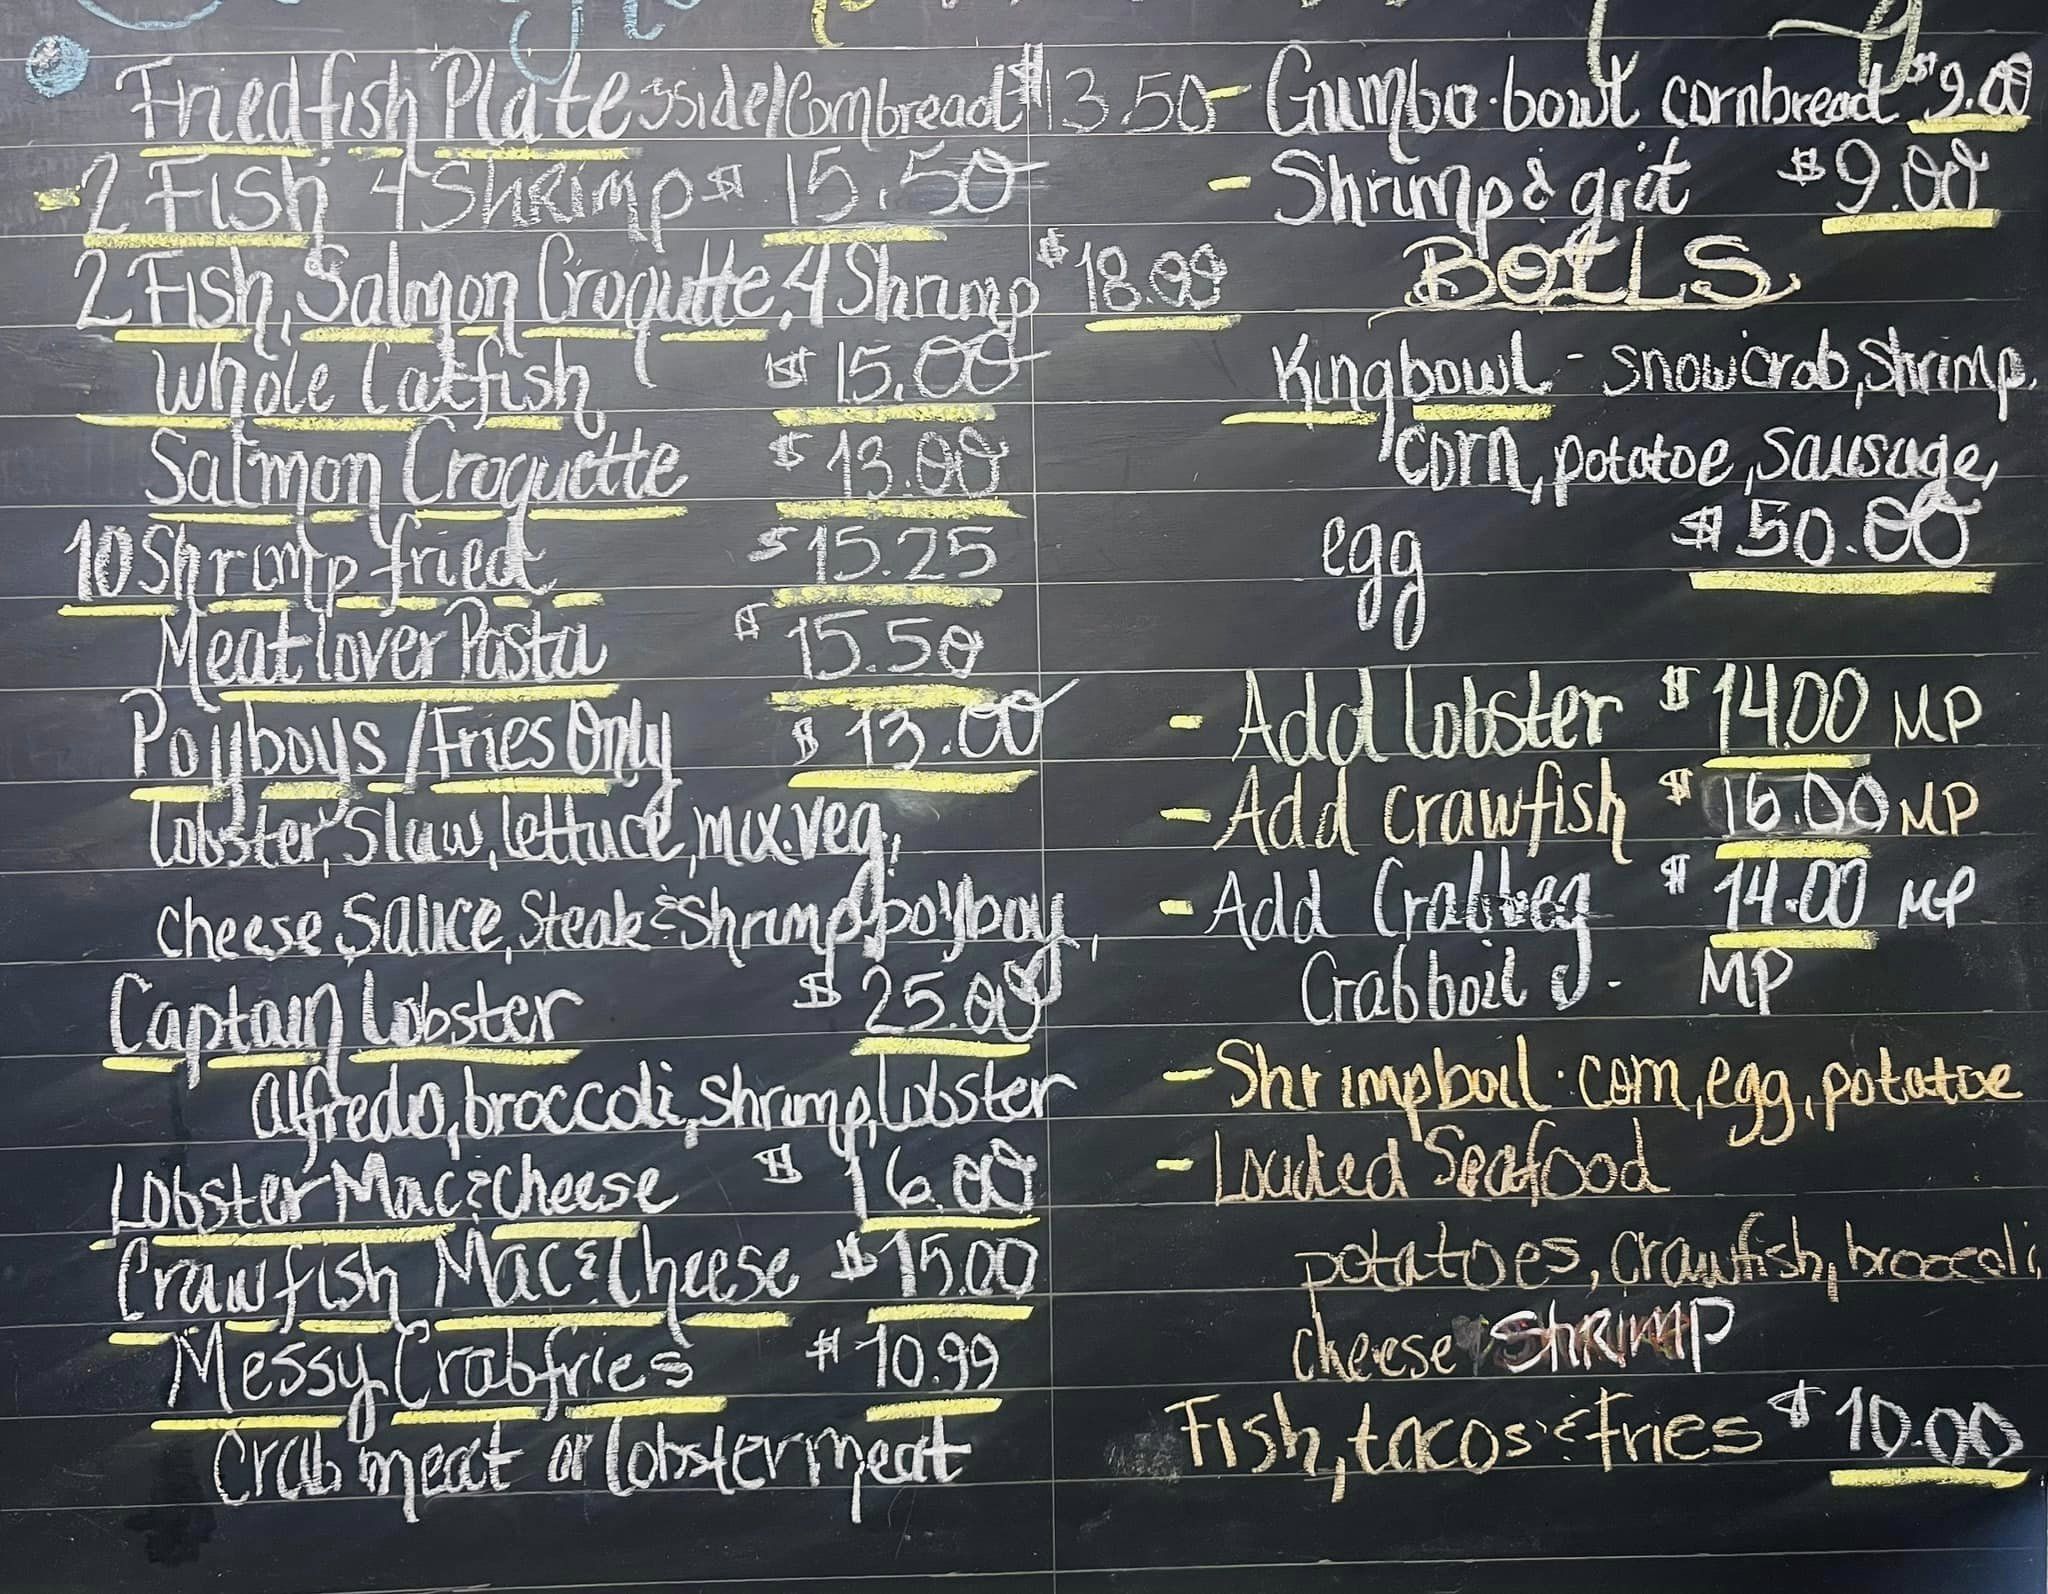 Fried fish Plate 3side/Cornbread $13.50
- 2 Fish 4 Shrimp $ 15.50
2 Fish, Salmon Croqutte, 4 Shrimp $18.99
Whole Catfish $ 15.00
Salmon Croquette $ 13.00
10 Shrimp fried $ 15.25
Meat lover Pasta $ 15.50
Poyboys / Fries Only $ 13.00
lobster, slaw, lettuce, mix.veg,
cheese sauce, steak & shrimp poyboy,
Captain lobster $ 25.00
alfredo, broccoli, shrimp, lobster
Lobster Mac & cheese $ 16.00
Crawfish Mac & Cheese $ 15.00
Messy Crabfries $ 10.99
Crab meat or lobster meat
- Gumbo. bowl cornbread $9.00
- Shrimp & grit $9.00
BOILS
King bowl - snow crab, shrimp,
corn, potatoe, sausage,
egg $50.00
- Add lobster $14.00 MP
- Add crawfish $16.00 MP
- Add Crableg $14.00 MP
Crab boil - MP
- Shrimp boil. corn, egg, potatoe
- Loaded Seafood
potatoes, crawfish, broccoli,
cheese, SHRIMP
Fish, tacos & fries $10.00